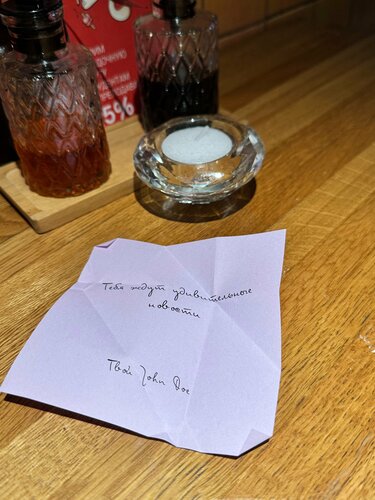 5%
Тебя ждут удивительные
новости
Твой John Doe